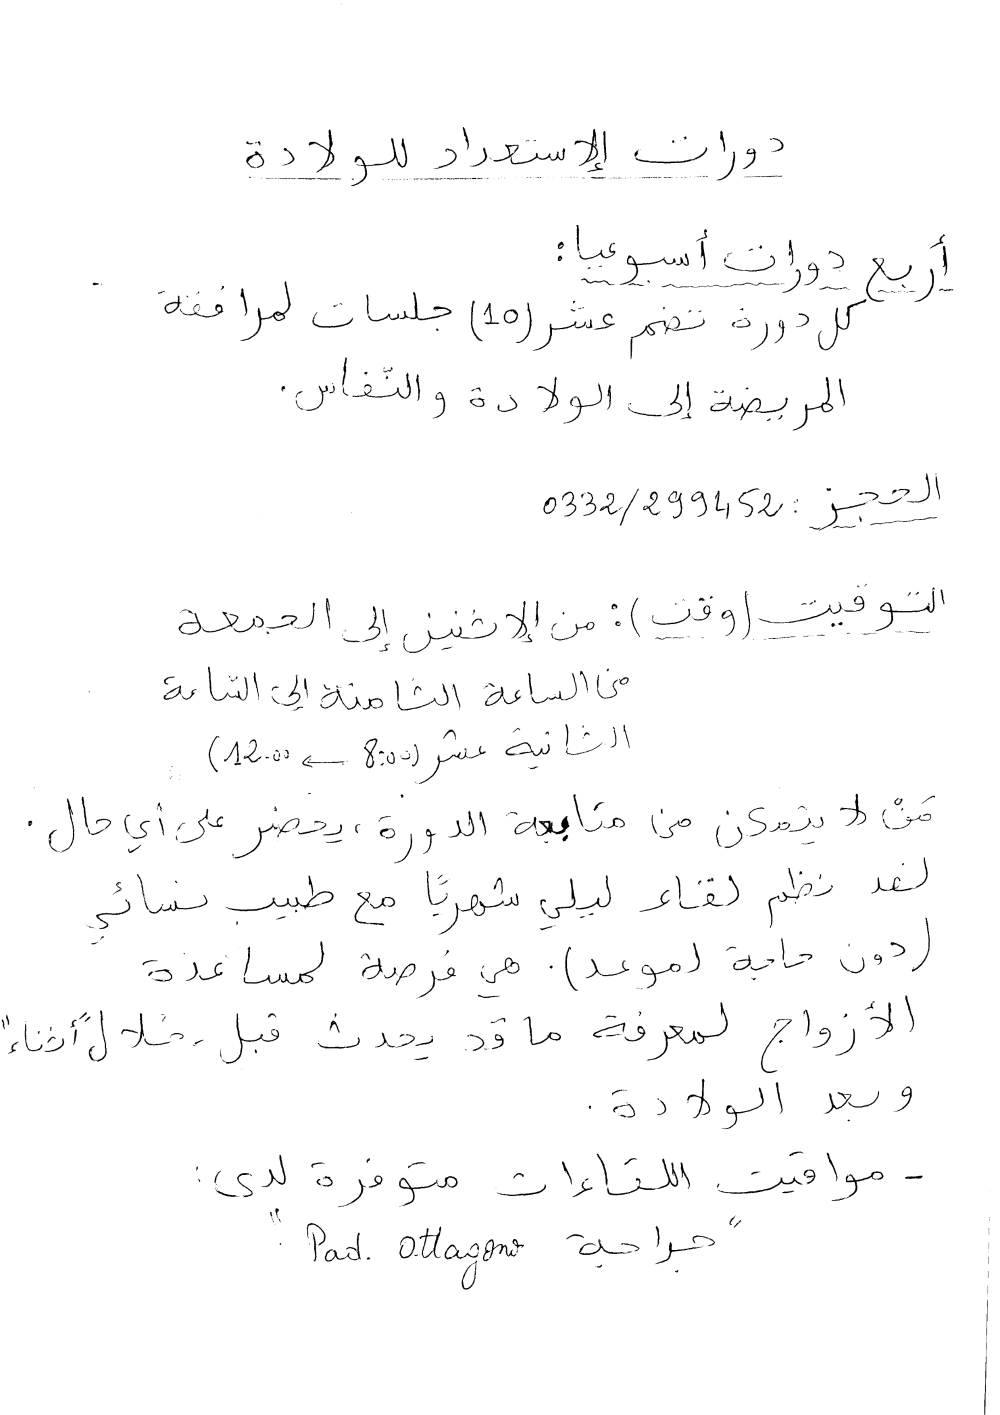 دورات الإستعداد للولادة
أربع دورات أسبوعيا:
كل دورة تضم عشر (10) جلسات لمرافقة
المريضة إلى الولادة والنّفاس.
الحجز: 0332/299452
التوقيت (وقت): من الإثنين إلى الجمعة
من الساعة الثامنة إلى الساعة
الثانية عشر (8:00 ← 12.00)
مَنْ لا يتمكن من متابعة الدورة، يحضر على أي حال.
لقد نظم لقاء ليلي شهريًا مع طبيب نسائي
(دون حاجة لموعد). هي فرصة لمساعدة
الأزواج لمعرفة ما قد يحدث قبل، خلال "أثناء"
وبعد الولادة.
- مواقيت اللقاءات متوفرة لدى:
"جراحة Pad. Ottagono".